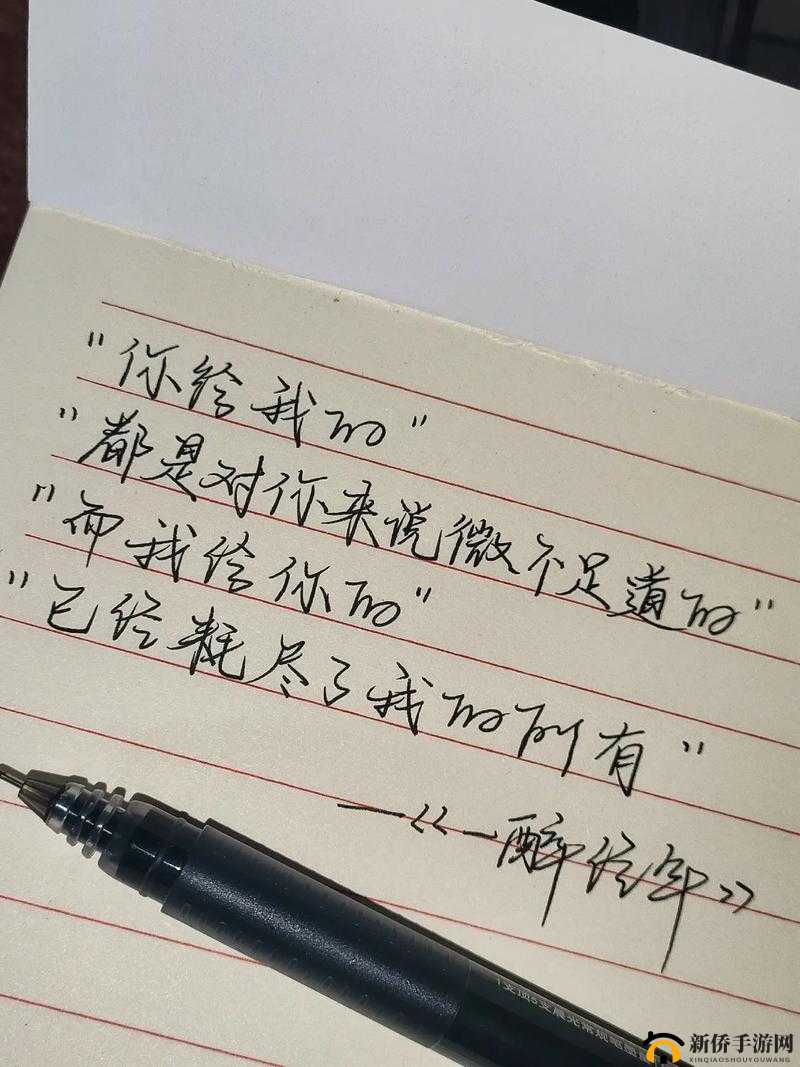 "你给我的"
"都是对你来说微不足道的"
"而我给你的"
"已经耗尽了我的所有"
——《一醉经年》
新侨手游网
XINQIAOSHOUYOUWANG